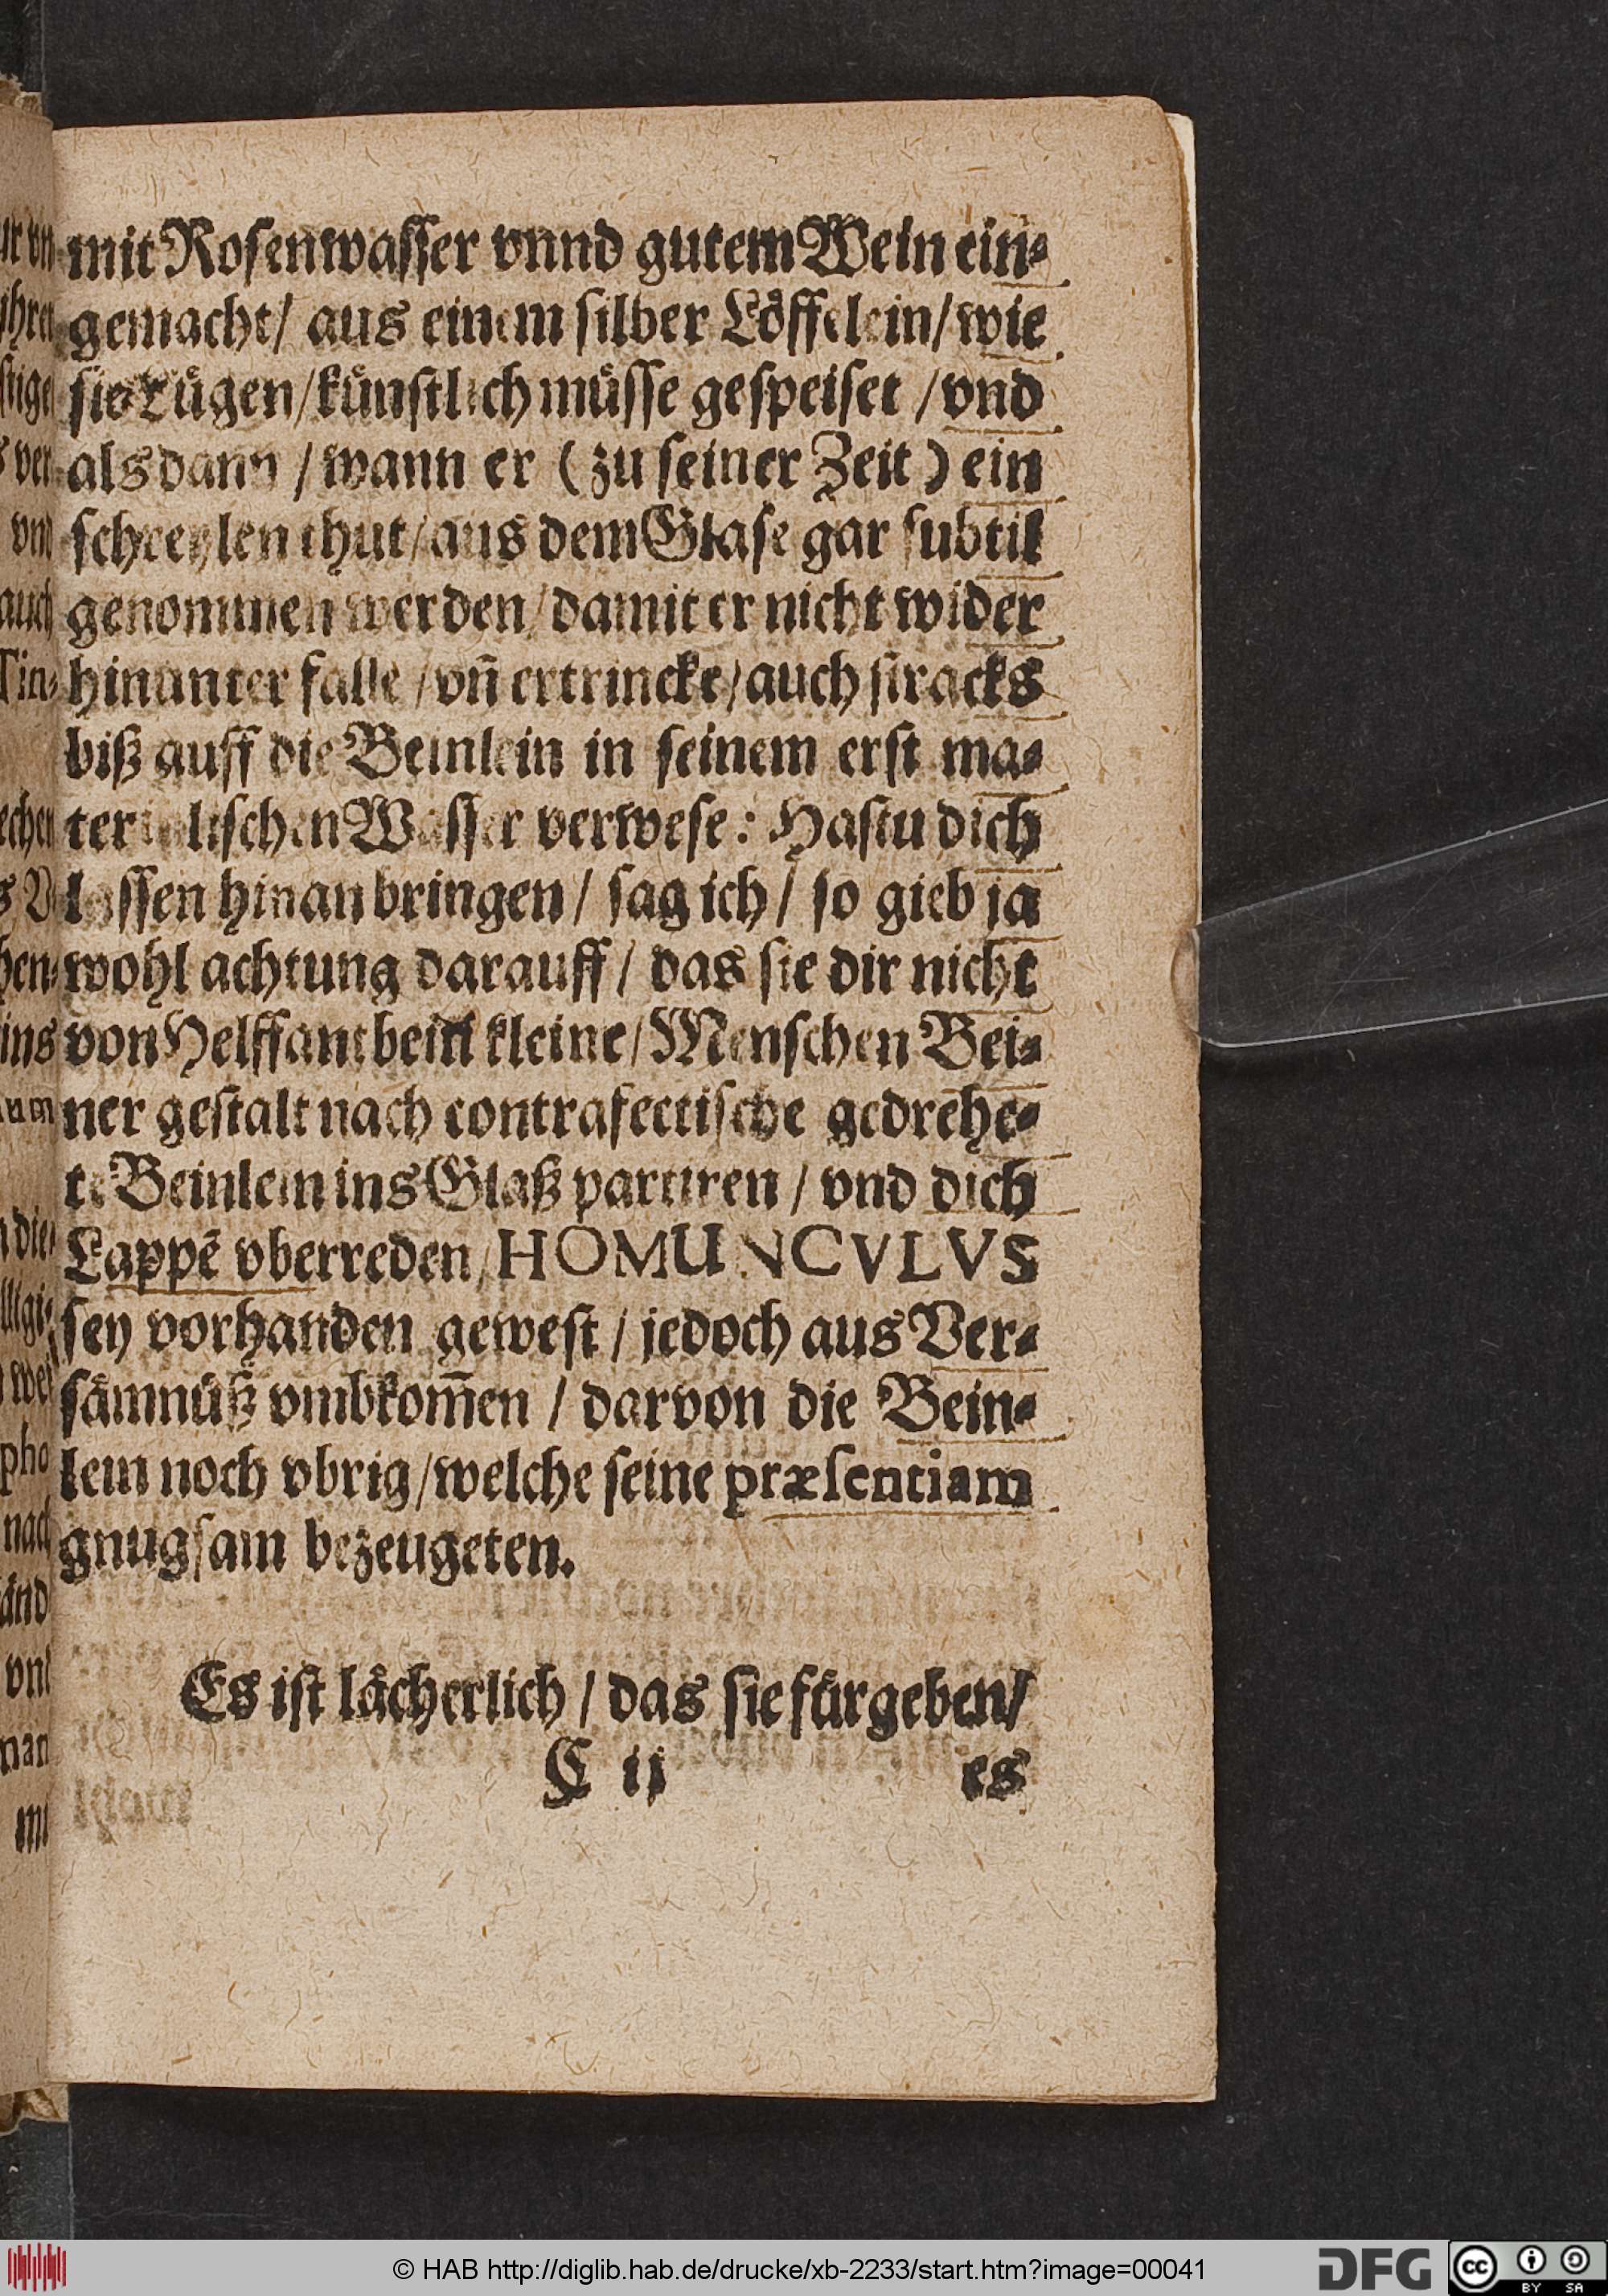 mit Rosenwasser vnnd gutem Wein ein⸗
gemacht/ aus einem silber Löffelein/ wie
sie Lügen/ künstlich müsse gespeiset / vnd
als dann / wann er (zu seiner Zeit) ein
schreylen thut/ aus dem Glase gar subtil
genommen werden/ damit er nicht wider
hinunter falle / vñ ertrincke/ auch stracks
biß auff die Beinlein in seinem erst ma⸗
terialischen Wasser verwese: Hastu dich
lassen hinan bringen/ sag ich/ so gieb ja
wohl achtung darauff/ das sie dir nicht
von Helffantbein kleine/ Menschen Bei⸗
ner gestalt nach contrafectische gedrehe⸗
te Beinlein ins Glaß partiren / vnd dich
Lappē vberreden/ HOMUNCVLVS
sey vorhanden gewest / jedoch aus Ver⸗
sämnüß vmbkom̄en / darvon die Bein⸗
lein noch vbrig/ welche seine præsentiam
gnugsam bezeugeten.
Es ist lächerlich / das sie fürgeben/
C ij es
© HAB http://diglib.hab.de/drucke/xb-2233/start.htm?image=00041
DFG
cc BY SA